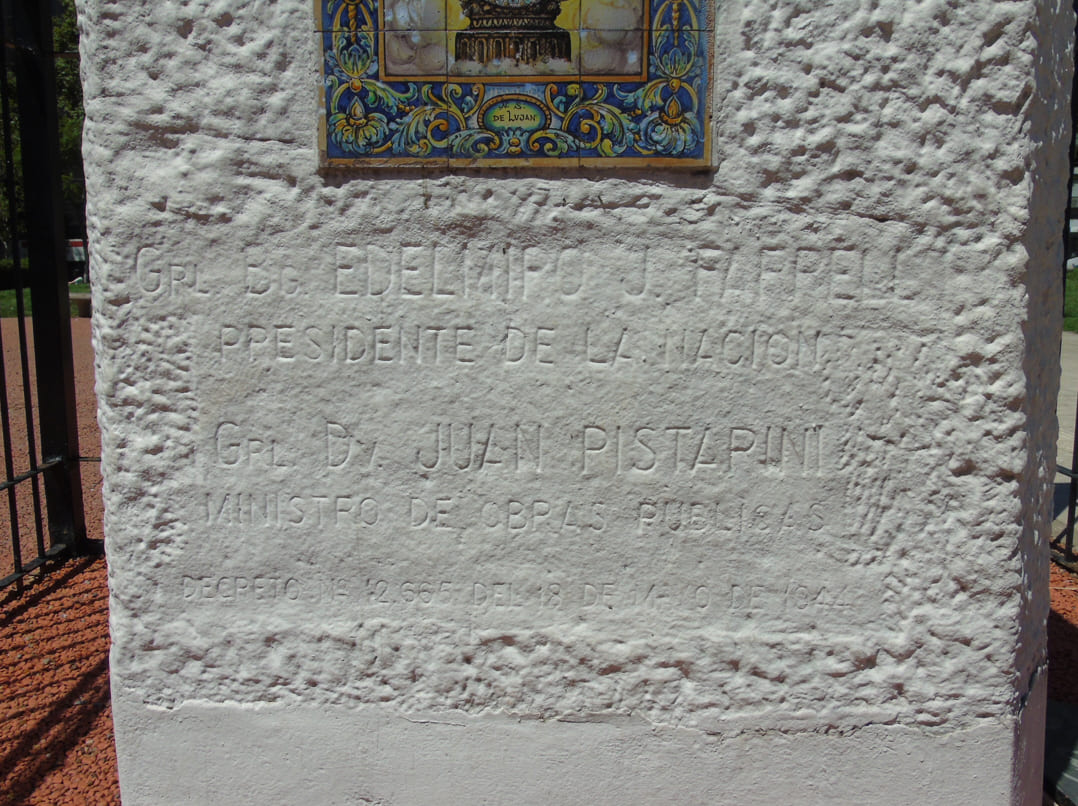 N. S.
DE LUJAN
GRL. BG. EDELMIRO J. FARRELL
PRESIDENTE DE LA NACION
GRL. DV. JUAN PISTARINI
MINISTRO DE OBRAS PUBLICAS
DECRETO Nº 12.665 DEL 18 DE MAYO DE 1944